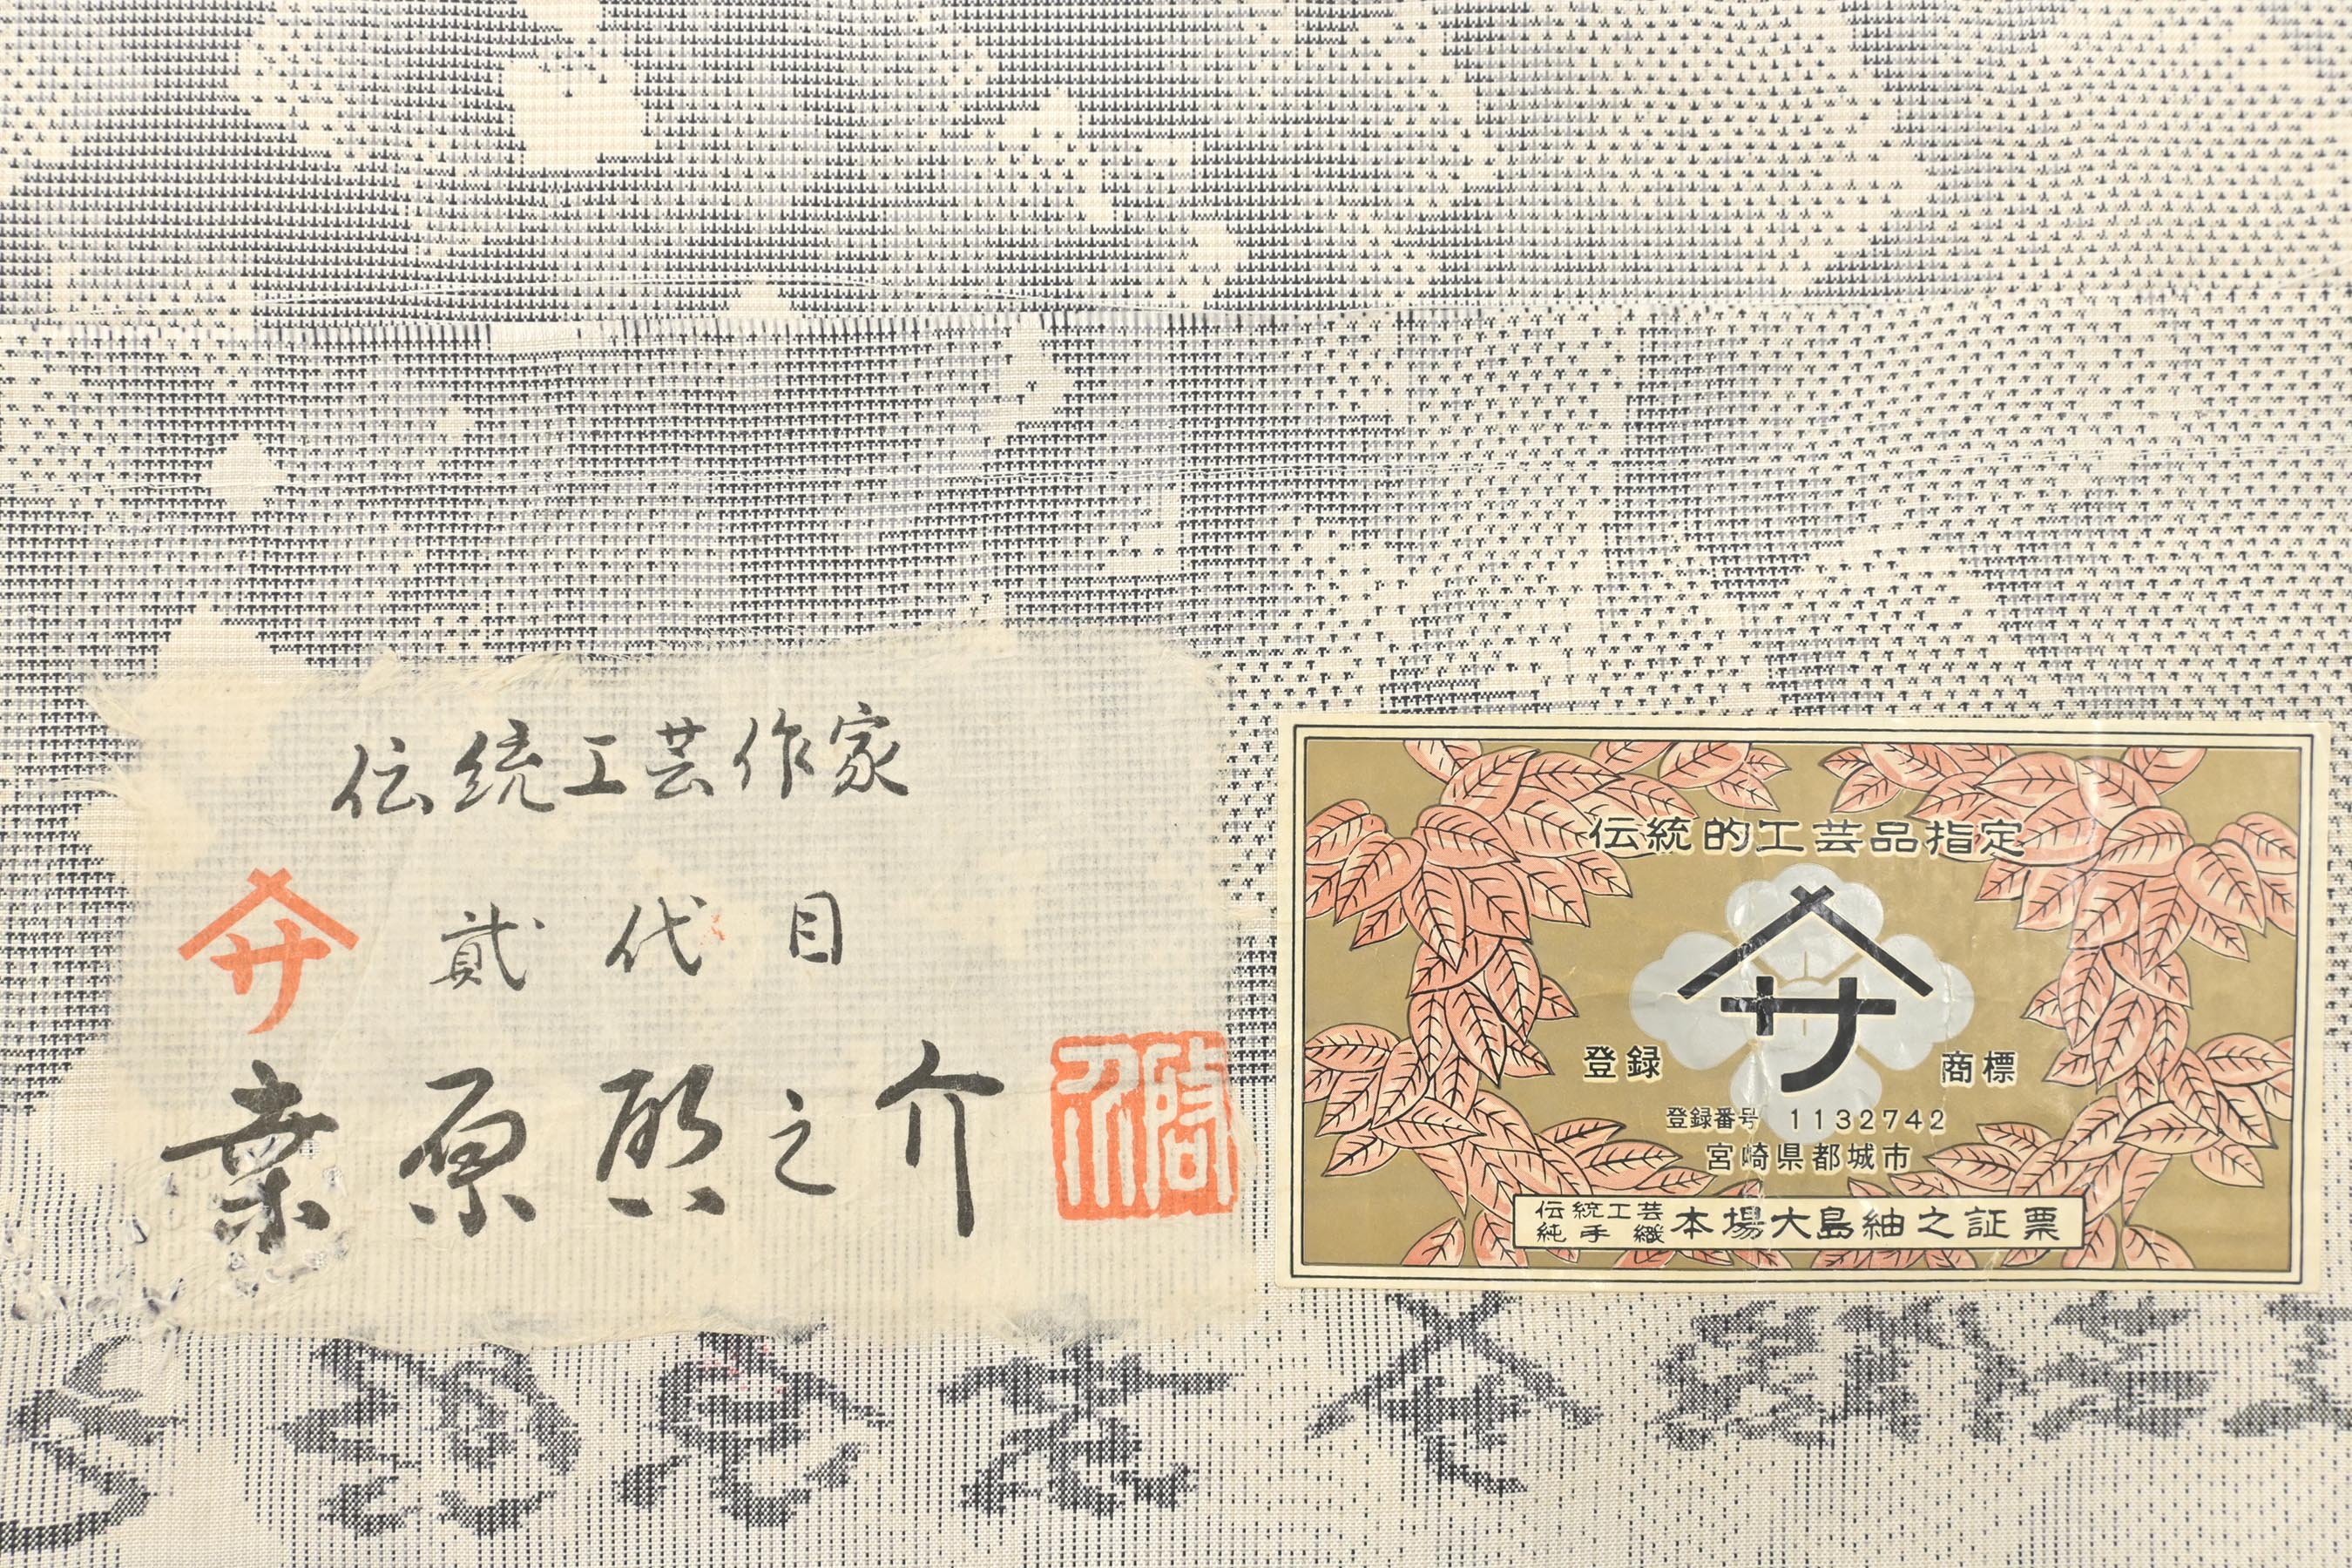 伝統工芸作家
サ
貳代目
桒原啓之介
伝統的工芸品指定
サ
登録 商標
登録番号 1132742
宮崎県都城市
伝統工芸
純手織
本場大島紬之証票